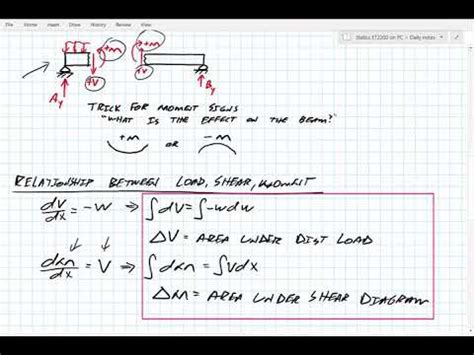 File Home Insert Draw View Help
Statics ET2200 on PC > Daily notes
+m +m
+V +V
Ay By
TRICK FOR MOMENT SIGNS
"WHAT IS THE EFFECT ON THE BEAM?"
+m -m
RELATIONSHIP BETWEEN LOAD, SHEAR, MOMENT
dV/dx = -W → ∫dV = ∫-wdw
ΔV = AREA UNDER DIST LOAD
dm/dx = V → ∫dm = ∫Vdx
Δm = AREA UNDER SHEAR DIAGRAM